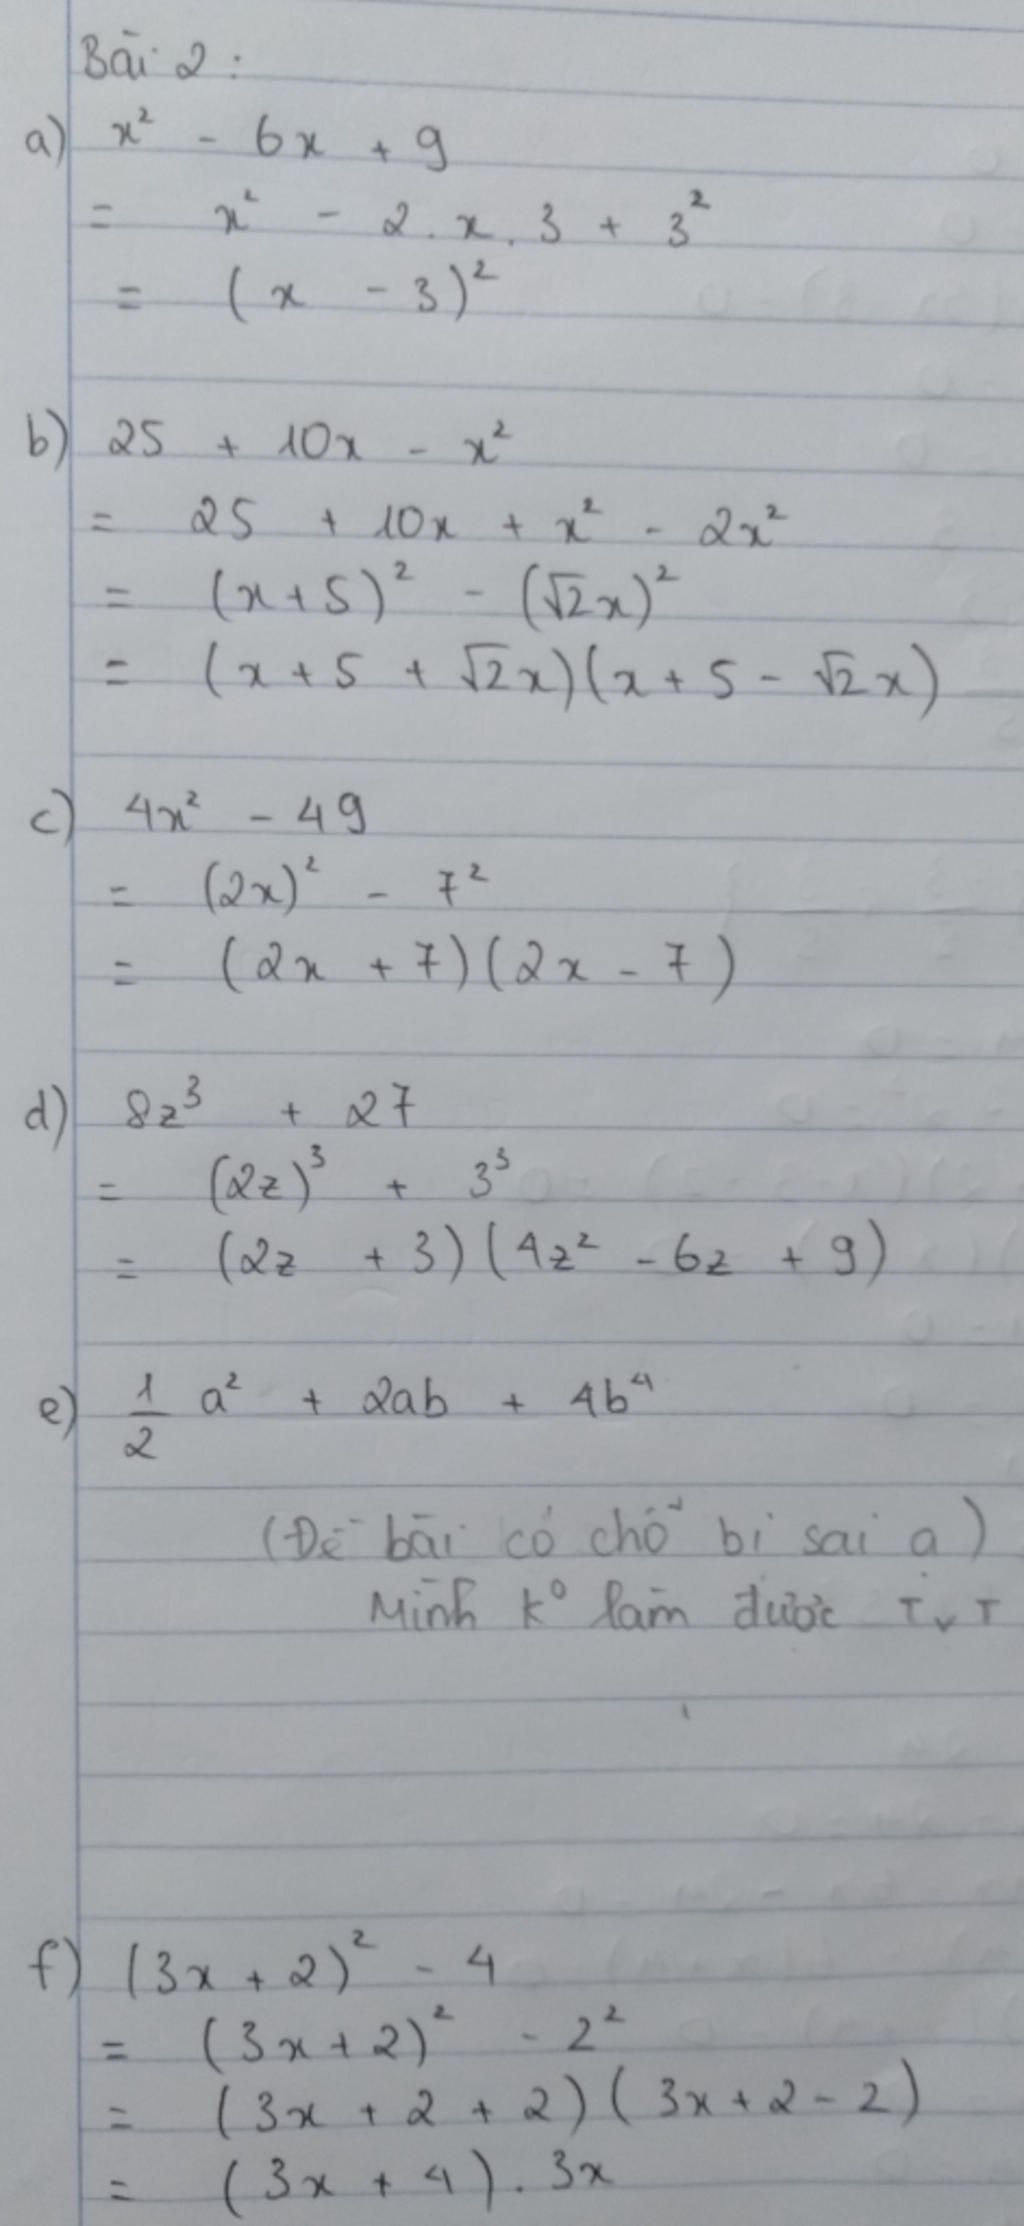 Bài 2 :
a) x² - 6x + 9
= x² - 2 . x . 3 + 3²
= (x - 3)²
b) 25 + 10x - x²
= 25 + 10x + x² - 2x²
= (x + 5)² - (√2x)²
= (x + 5 + √2x)(x + 5 - √2x)
c) 4x² - 49
= (2x)² - 7²
= (2x + 7)(2x - 7)
d) 8z³ + 27
= (2z)³ + 3³
= (2z + 3)(4z² - 6z + 9)
e) 1/2 a² + 2ab + 4b⁴
(Đề bài có chỗ bị sai ạ)
Mình k° làm được T v T
f) (3x + 2)² - 4
= (3x + 2)² - 2²
= (3x + 2 + 2)(3x + 2 - 2)
= (3x + 4) . 3x